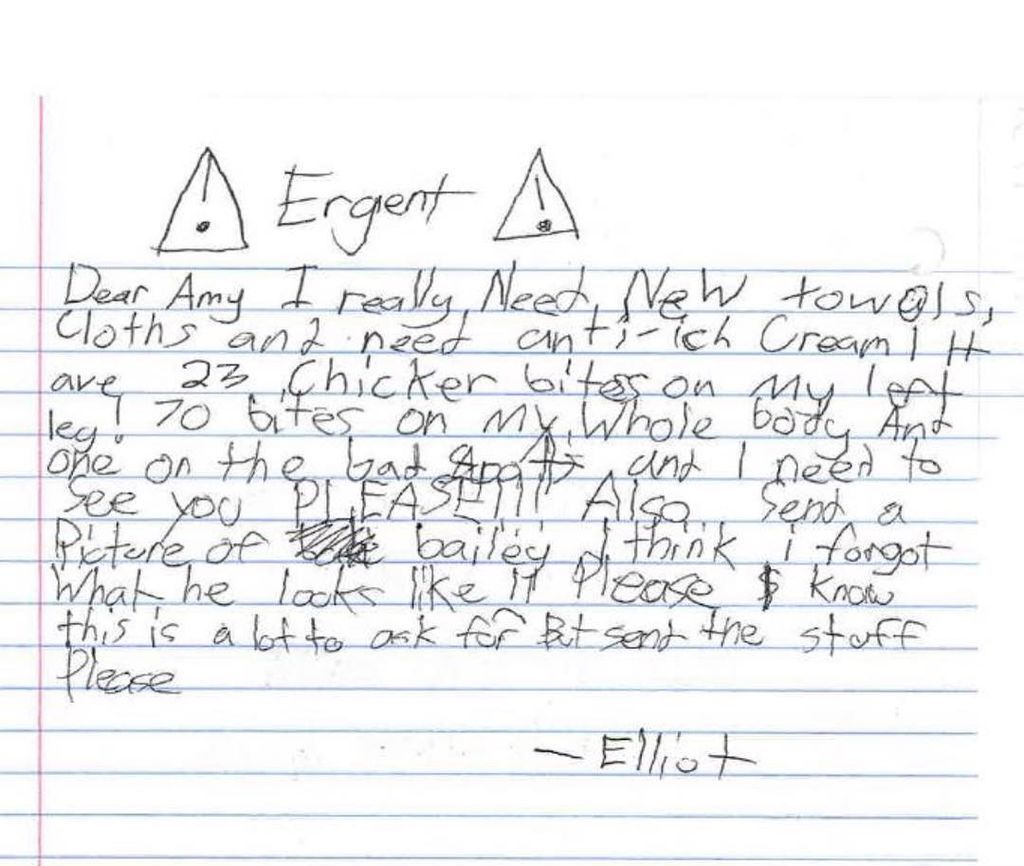 ! Ergent !
Dear Amy I really Need New towels,
Cloths and need anti-ich Cream! H
ave 23 Chicker bites on My left
leg! 70 bites on My Whole body And
one on the bad spots and I need to
See you PLEASE!!!! Also Send a
Picture of bailey I think i forgot
What he looks like !! Please I know
this is a lot to ask for But send the stuff
Please
- Elliot